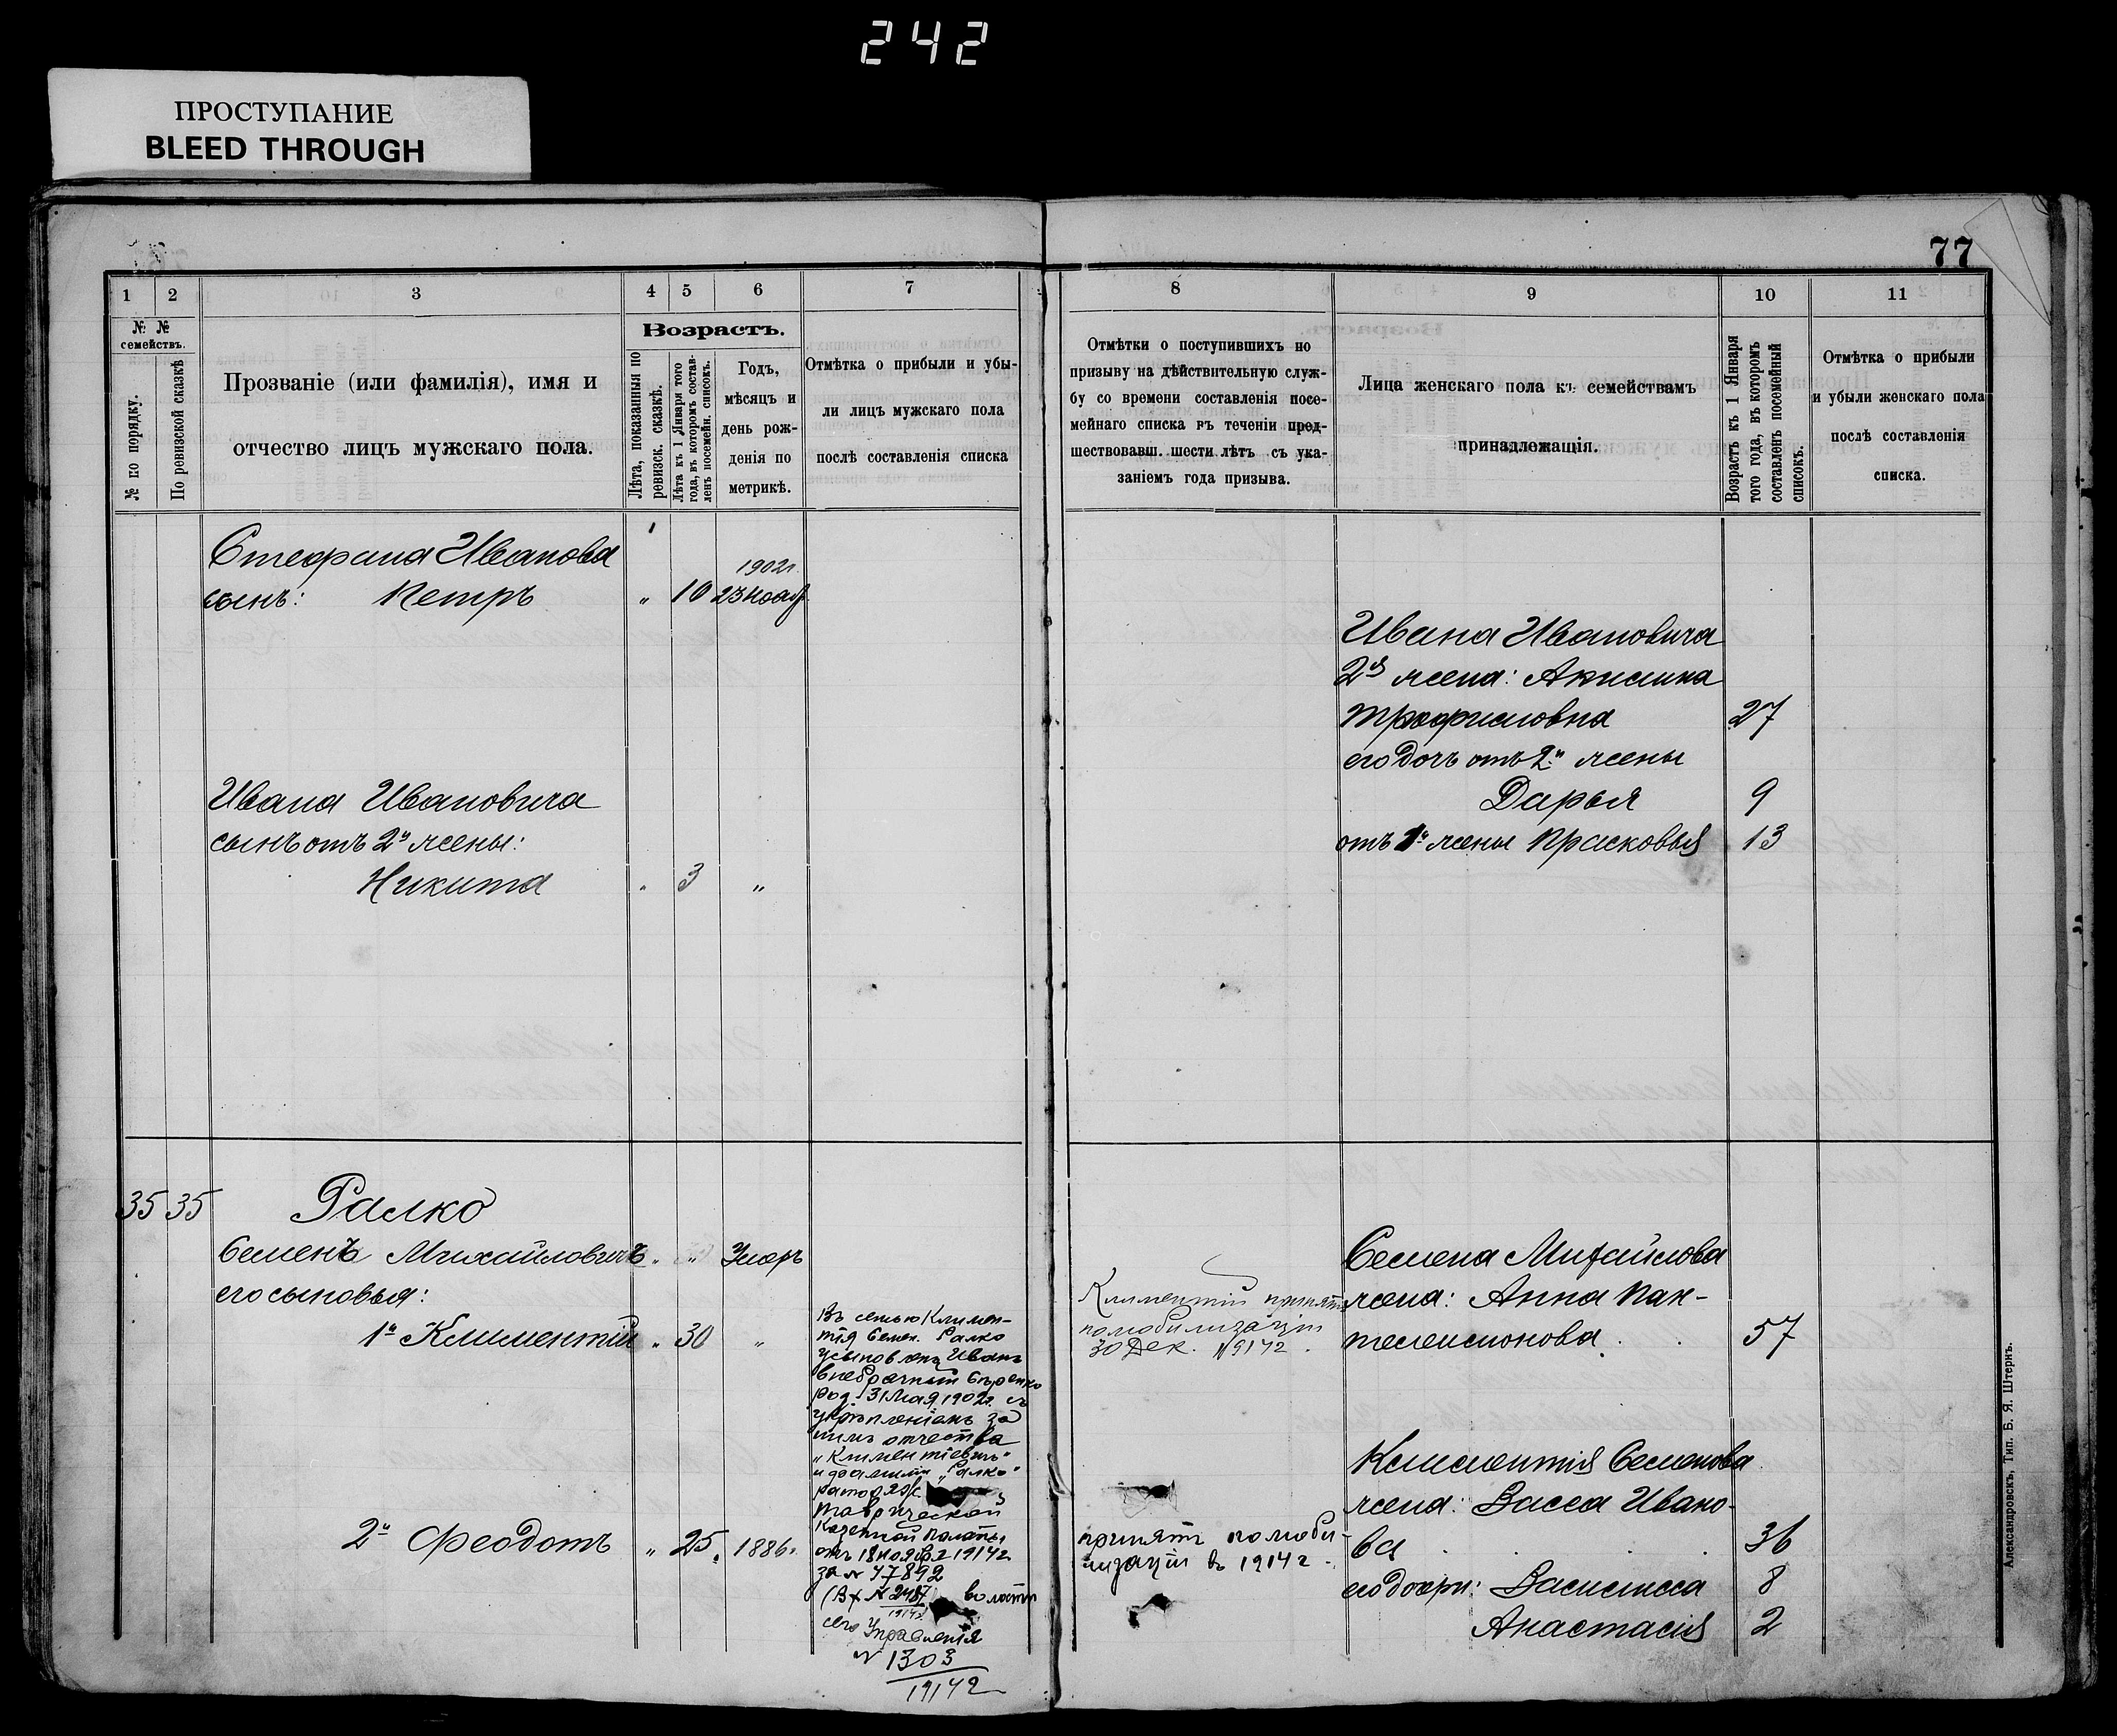 242
ПРОСТУПАНИЕ
BLEED THROUGH
77
1 2 3 4 5 6 7 8 9 10 11
№ №
семействъ.
№ по порядку.
По ревизской сказкѣ
Прозваніе (или фамилія), имя и
отчество лицъ мужскаго пола.
Возрастъ.
Лѣта, показанныя по
ревизск. сказкѣ.
Лѣта къ 1 Января того
года, въ которомъ состав-
ленъ посемейн. списокъ.
Годъ,
мѣсяцъ и
день рож-
денія по
метрикѣ.
Отмѣтка о прибыли и убы-
ли лицъ мужскаго пола
послѣ составленія списка
Отмѣтки о поступившихъ по
призыву на дѣйствительную служ-
бу со времени составленія посе-
мейнаго списка въ теченіи пред-
шествовавш. шести лѣтъ съ ука-
заніемъ года призыва.
Лица женскаго пола къ семействамъ
принадлежащія.
Возрастъ къ 1 Января
того года, въ которомъ
составленъ посемейный
списокъ.
Отмѣтка о прибыли
и убыли женскаго пола
послѣ составленія
списка.
Стефана Иванова
1902г.
сынъ: Петръ " 10 23 нояб.
Ивана Ивановича
2я жена: Акилина
Трофимовна 27
его дочь отъ 2й жены
Ивана Ивановича
Дарья 9
сынъ отъ 2й жены:
отъ 1й жены Прасковья 13
Никита " 3 "
35 35 Ралко
Семенъ Михайловичъ " " Умеръ
его сыновья:
1й Климентій " 30 "
Въ семью Климен-
тія Семен. Ралко
усыновленъ Иванъ
внебрачный
род. 31 Мая 1902г. съ
укрѣпленіемъ за
нимъ отчества
„Климентіевичъ"
и фамиліи „Ралко"
Таврической
Казенной Палаты
отъ 18 ноября 1914г.
за № 47892
(Вх № 2487
1914г.
волостн
Управленія
№ 1303
1914г.
2й Феодотъ " 25. 1886г.
Климентій принятъ
по мобилизаціи
30 Дек. 1914г.
принятъ по моби-
лизаціи въ 1914г.
Семена Михайлова
жена: Анна Пан-
телеимонова. 57
Климентія Семенова
жена: Васса Ивано-
ва 36
его дочери: Василисса 8
Анастасія 2
Александровскъ, Тип. Б. Я. Штернъ.